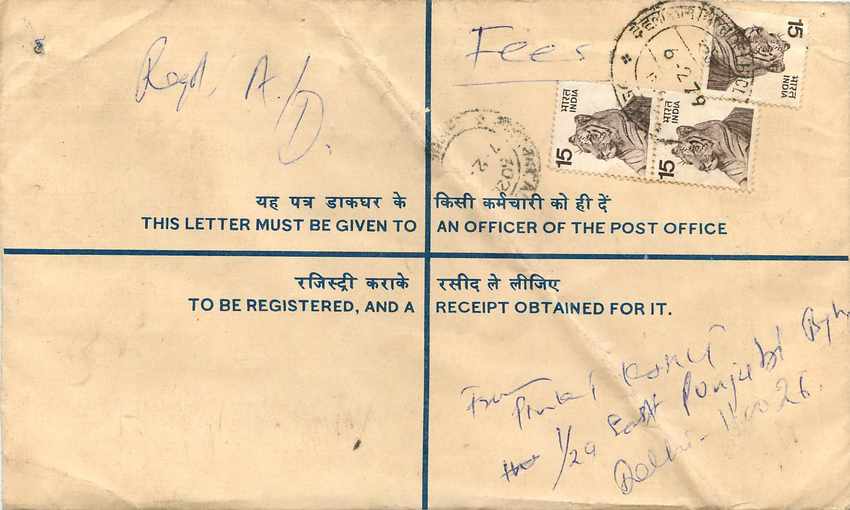 Regd. A/D.
Fees
15
भारत
INDIA
15
भारत
INDIA
15
भारत
INDIA
यह पत्र डाकघर के किसी कर्मचारी को ही दें
THIS LETTER MUST BE GIVEN TO AN OFFICER OF THE POST OFFICE
रजिस्ट्री कराके रसीद ले लीजिए
TO BE REGISTERED, AND A RECEIPT OBTAINED FOR IT.
From
1/29 East Punjabi Bagh
Delhi - 110026.